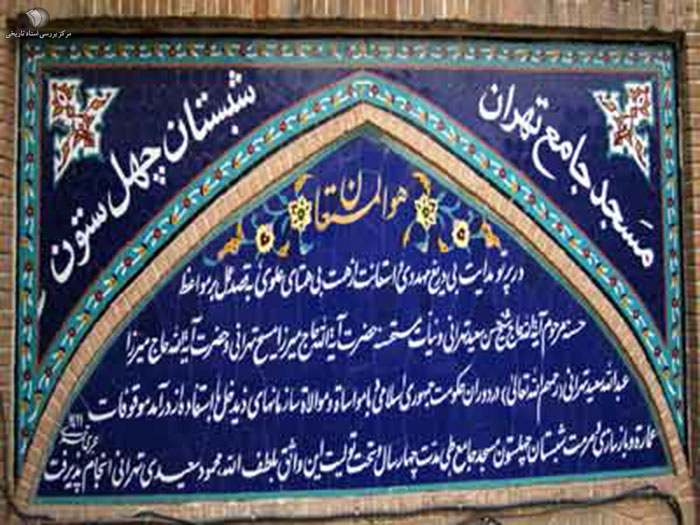 مرکز بررسی اسناد تاریخی
مسجد جامع تهران
شبستان چهل ستون
هوالمستعان
در پرتو هدایت بی دریغ مهدوی و استعانت از همت بی همتای علوی به قصد عمل بر مواعظ
حسنه مرحوم آیة الله حاج شیخ حسن سعید تهرانی و نیات مستحسنه حضرت آیة الله حاج میرزا مسیح تهرانی و حضرت آیة الله حاج میرزا
عبدالله سعید تهرانی (رحمهم الله تعالی) در دوران حکومت جمهوری اسلامی و با مواساة و موالاة سازمانهای ذیدخل با استفاده از درآمد موقوفات
عمارة و بازسازی و مرمت شبستان چهلستون مسجد جامع طی مدت چهار سال و تحت تولیت این واثق بلطف الله محمود سعیدی تهرانی انجام پذیرفت